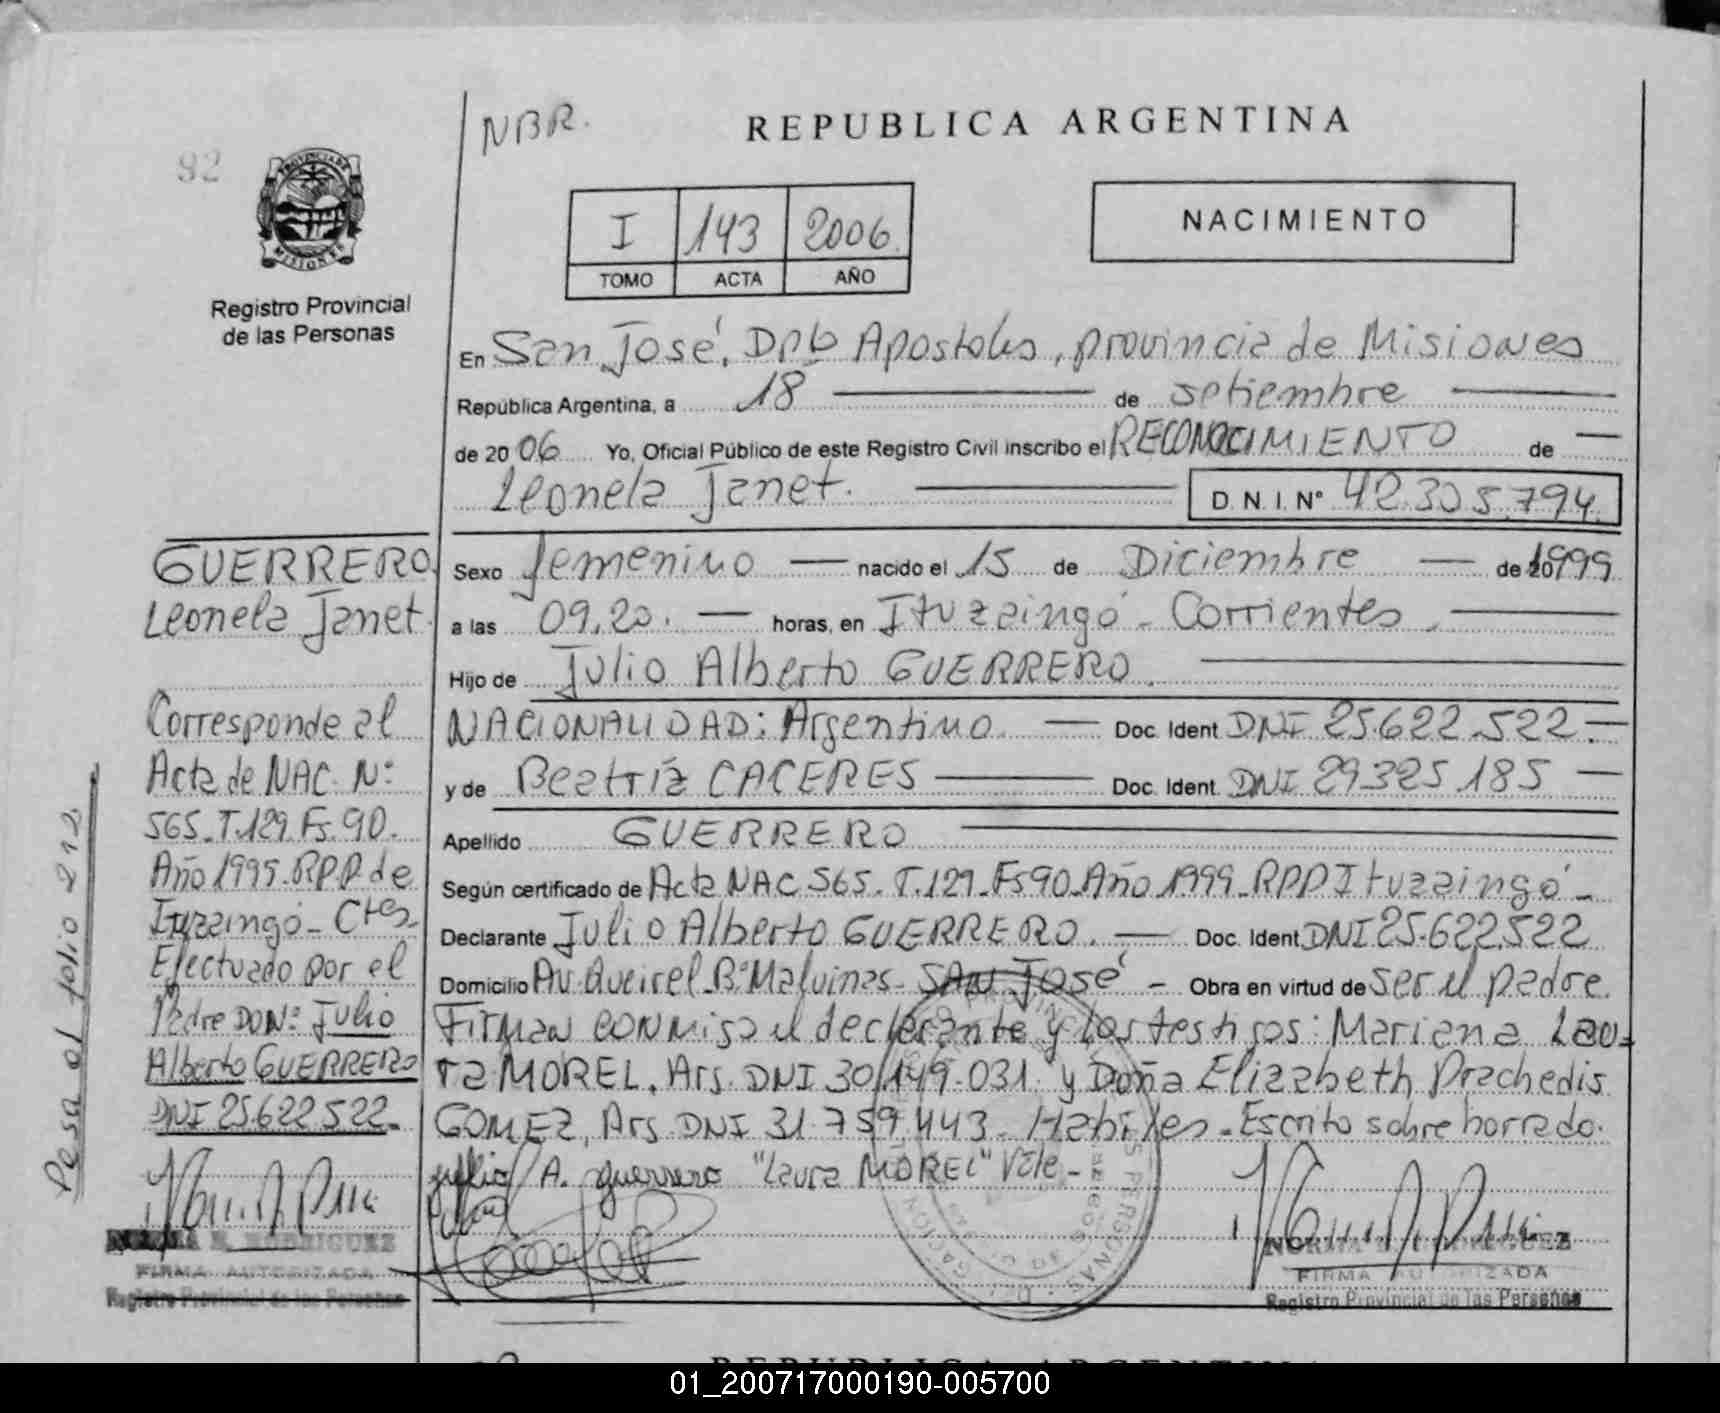 NBR.
REPUBLICA ARGENTINA
92
PROVINCIA DE
MISIONES
I 143 2006
TOMO ACTA AÑO
NACIMIENTO
Registro Provincial
de las Personas
En San José, Dpto Apostoles, provincia de Misiones
República Argentina, a 18 de setiembre
de 2006 Yo, Oficial Público de este Registro Civil inscribo el RECONOCIMIENTO de
Leonela Janet. D.N.I. Nº 42.305.794.
GUERRERO
Leonela Janet.
Corresponde al
Acta de NAC. Nº
565. T.129. Fs. 90.
Año 1995. RPP. de
Ituzaingó - Ctes.
Efectuado por el
Padre DON: Julio
Alberto GUERRERO
DNI 25.622.522.
Pasa al folio 212
NORMA RODRIGUEZ
FIRMA AUTORIZADA
Registro Provincial de las Personas
Sexo femenino nacido el 15 de Diciembre de 201999
a las 09,20. horas, en Ituzaingó - Corrientes.
Hijo de Julio Alberto GUERRERO.
NACIONALIDAD: Argentino. Doc. Ident. DNI 25.622.522.
y de Beatríz CACERES Doc. Ident. DNI 29.325.185
Apellido GUERRERO
Según certificado de Acta NAC 565. T.129. Fs 90. Año 1999. RPP Ituzaingó -
Declarante Julio Alberto GUERRERO. Doc. Ident. DNI 25.622.522
Domicilio Av. Queirel. Bº Malvinas - SAN José - Obra en virtud de ser el padre.
Firman conmigo el declarante y los testigos: Mariana Lau-
ra MOREL, Arg. DNI 30.149.031. y Doña Elizabeth Prachedis
GOMEZ, Arg. DNI 31.759.443. Habiles - Escrito sobre borrado.
julio A. guerrero "Laura MOREL" Vale -
NORMA RODRIGUEZ
FIRMA AUTORIZADA
Registro Provincial de las Personas
REPUBLICA ARGENTINA
01_200717000190-005700